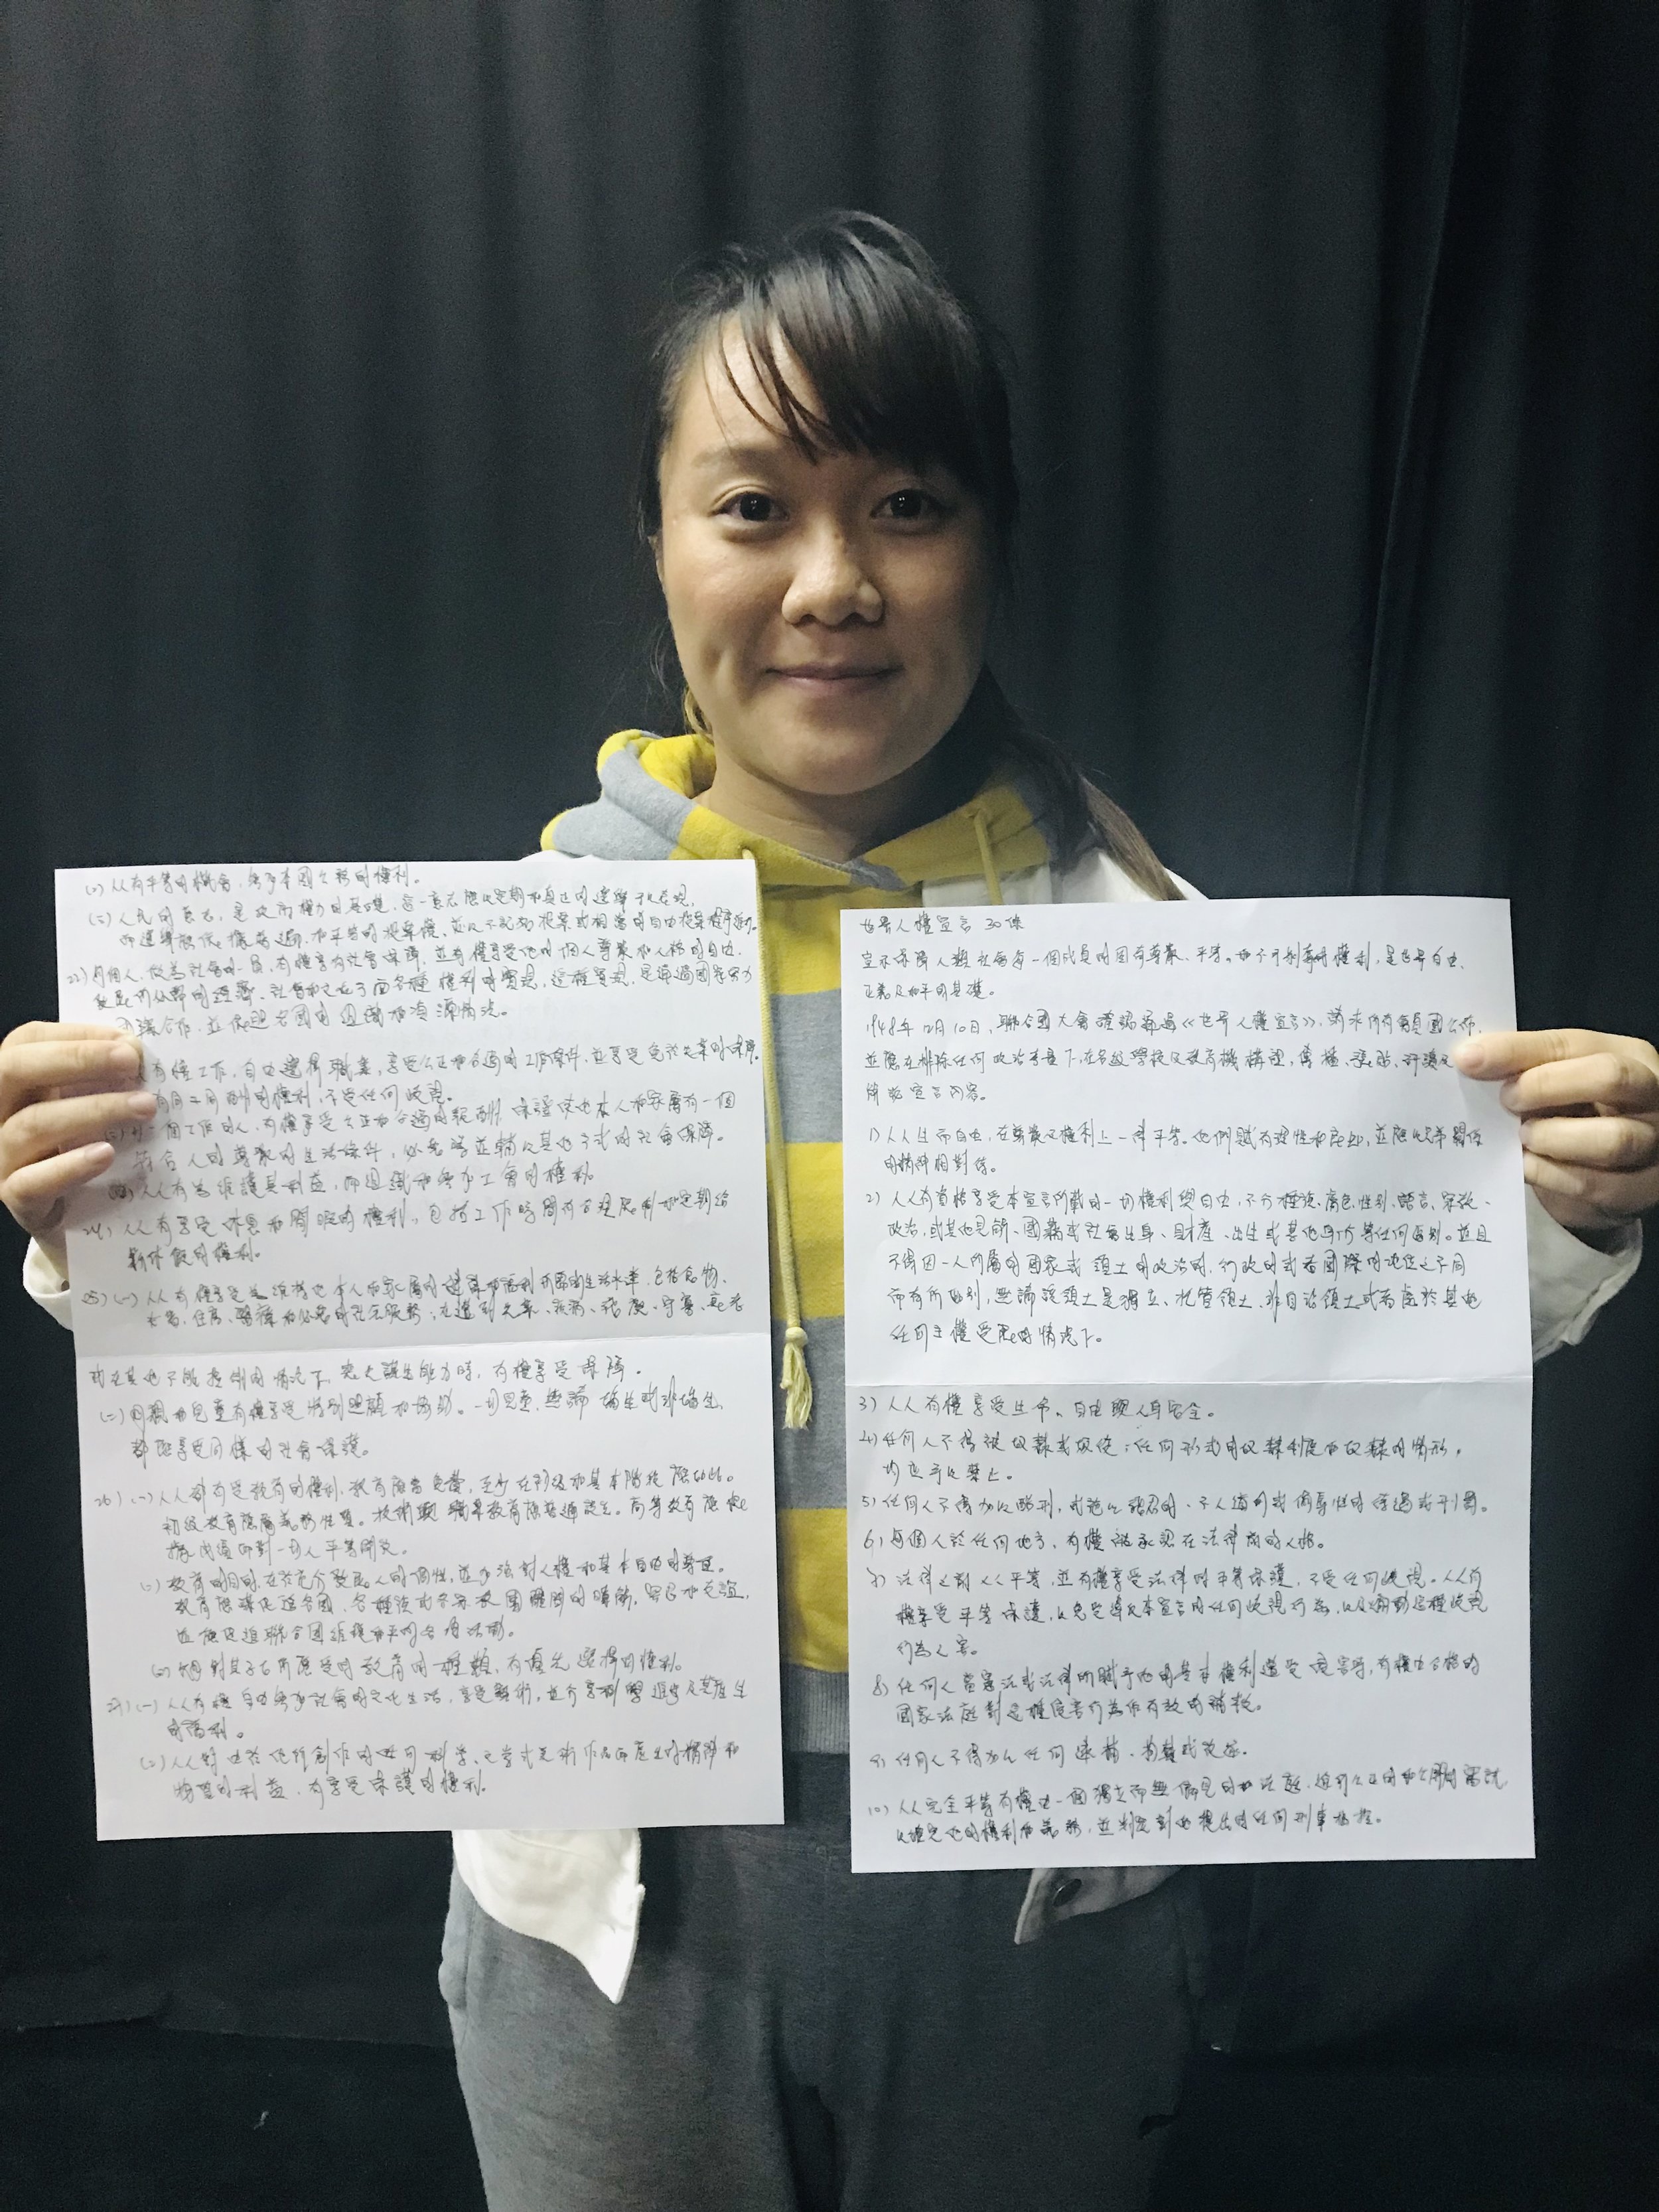 (二) 人人有平等的機會，參予本國公務的權利。
(三) 人民的意志，是政府權力的基礎，這一意志應以定期和真正的選舉予以表現，
而選舉應依據普遍和平等的投票權，並以不記名投票或相當的自由投票程序進行。
22) 每個人，做為社會的一員，有權享有社會保障，並有權享受他的個人尊嚴和人格的自由
發展所必需的經濟、社會和文化方面各種權利的實現，這種實現，是通過國家努力
國際合作，並依照各國的組織和資源情況。
人有權工作、自由選擇職業，享受公正和合適的工作條件，並享受免於失業的保障。
有同工同酬的權利，不受任何歧視。
(三) 每一個工作的人，有權享受公正和合適的報酬，保證使他本人和家屬有一個
符合人的尊嚴的生活條件，必要時並輔以其他方式的社會保障。
(四) 人人有為維護其利益，而組織和參加工會的權利。
24) 人人有享受休息和閒暇的權利，包括工作時間有合理限制和定期給
薪休假的權利。
25) (一) 人人有權享受為維持他本人和家屬的健康和福利所需的生活水準，包括食物、
衣著、住房、醫療和必要的社會服務；在遭到失業、疾病、殘廢、守寡、衰老
或在其他不能控制的情況下，喪失謀生能力時，有權享受保障。
(二) 母親和兒童有權享受特別照顧和協助。一切兒童，無論婚生或非婚生，
都應享受同樣的社會保護。
26) (一) 人人都有受教育的權利，教育應當免費，至少在初級和基本階段應如此。
初級教育應屬義務性質。技術與職業教育應普遍設立。高等教育應依
據成績而對一切人平等開放。
(二) 教育的目的，在於充分發展人的個性，並加強對人權和基本自由的尊重。
教育應促進各國、各種族或各宗教團體間的瞭解、容忍和友誼，
並應促進聯合國維護和平的各項活動。
(三) 父母對其子女所應受的教育的種類，有優先選擇的權利。
27) (一) 人人有權自由參加社會的文化生活，享受藝術，並分享科學進步及其產生
的福利。
(二) 人人對由於他所創作的任何科學、文學或美術作品而產生的精神和
物質的利益，有享受保護的權利。
世界人權宣言 30條
宣示保障人類社會每一個成員的固有尊嚴、平等。和不可剝奪的權利，是世界自由、
正義及和平的基礎。
1948年12月10日，聯合國大會確認通過《世界人權宣言》，請求所有會員國公佈，
並應在排除任何政治考量下，在各級學校及教育機構裡，傳播、張貼、評讀及
解說宣言內容。
1) 人人生而自由，在尊嚴及權利上一律平等。他們賦有理性和良知，並應以兄弟關係
的精神相對待。
2) 人人有資格享受本宣言所載的一切權利與自由，不分種族、膚色、性別、語言、宗教、
政治，或其他見解、國籍或社會出身、財產、出生或其他身份等任何區別。並且
不得因一人所屬的國家或領土的政治的、行政的或者國際的地位之不同
而有所區別，無論該領土是獨立、托管領土、非自治領土或者處於其他
任何主權受限的情況下。
3) 人人有權享受生命、自由與人身安全。
4) 任何人不得被奴隸或奴役；任何形式的奴隸制度和奴隸的情形，
均應予以禁止。
5) 任何人不得加以酷刑，或施以殘忍的、不人道的或侮辱性的待遇或刑罰。
6) 每個人於任何地方，有權被承認在法律前的人格。
7) 法律之前人人平等，並有權享受法律的平等保護，不受任何歧視。人人有
權享受平等保護，以免受違反本宣言的任何歧視行為，以及煽動這種歧視
行為之害。
8) 任何人當憲法或法律所賦予他的基本權利遭受侵害時，有權由合格的
國家法庭對這種侵害行為作有效的補救。
9) 任何人不得加以任何逮捕、拘禁或放逐。
10) 人人完全平等有權由一個獨立而無偏見的的法庭，進行公正的和公開的審訊
以確定他的權利和義務，並判定對他提出的任何刑事指控。